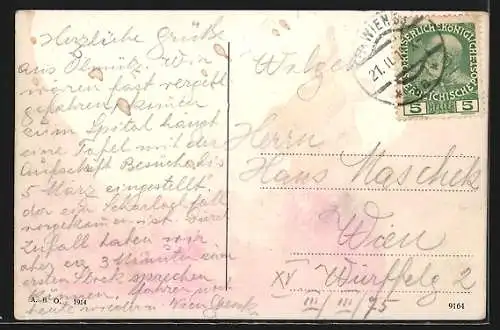 Herzliche Grüße
aus Olmütz. Wir
waren fast vergebl.
gefahren, kaum
zum Spital hängt
eine Tafel mit der
Aufschrift Besuche bis
5 März eingestellt,
da ein Scharlachfall
vorgekommen ist. Durch
Zufall haben wir
aber ca 3 Minuten im
ersten Stock sprechen
können. Fahren
heute wieder n. Wien
A. B. O. 1914
WIEN
21. II. 1
KAISERLICH KÖNIGLICHE
ÖSTERREICHISCHE POST
5 HELLER 5
Herrn
Hans Maschek
Wien
XV Wurffelg 2
III/III/75
9164